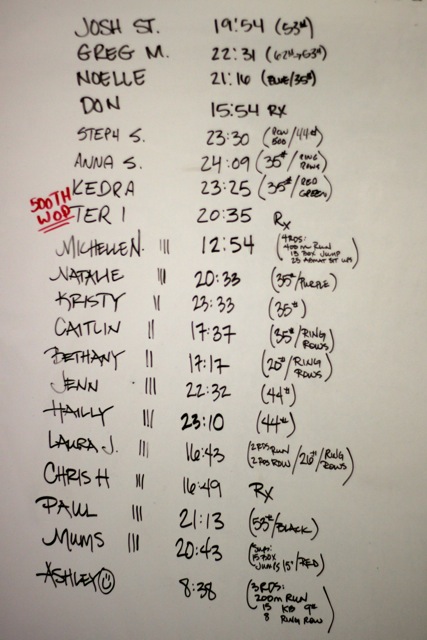 JOSH ST. 19:54 (53#)
GREG M. 22:31 (62#→53#)
NOELLE 21:16 (BLUE/35#)
DON 15:54 RX
STEPH S. 23:30 (ROW 500/44#)
ANNA S. 24:09 (35#/RING ROWS)
KEDRA 23:25 (35#/RED GREEN)
500TH WOD TERI 20:35 Rx
MICHELLE N. III 12:54 (4RDS: 400m RUN
15 BOX JUMP
25 ABMAT SIT UPS)
NATALIE III 20:33 (35#/PURPLE)
KRISTY II 23:33 (35#)
CAITLIN II 17:37 (35#/RING ROWS)
BETHANY II 17:17 (20#/RING ROWS)
JENN III 22:32 (44#)
HAILLY III 23:10 (44#)
LAURA J. III 16:43 (2 RDS RUN
2 RDS ROW/26#/RING ROWS)
CHRIS H III 16:49 Rx
PAUL III 21:13 (53#/BLACK)
MUMS III 20:43 (
15 BOX
JUMPS 15"/RED)
ASHLEY 8:38 (3RDS:
200m RUN
15 KB 9#
8 RING ROW)